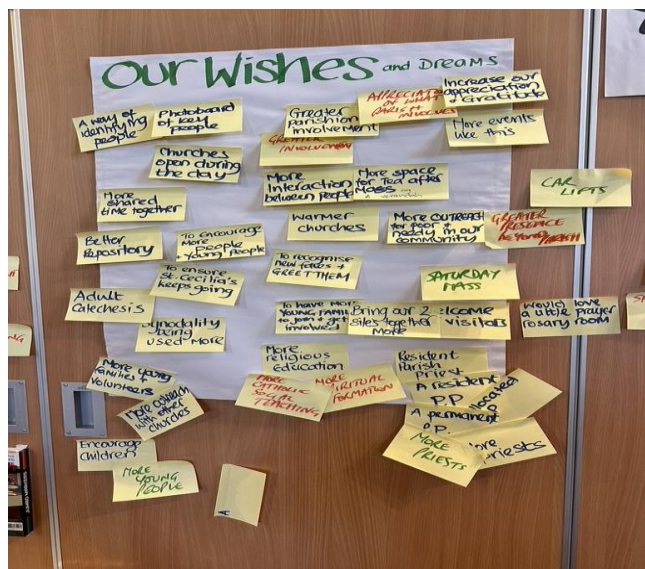 Our Wishes and Dreams
A way of
identifying
people
Photoboard
of key
people
Greater
Parishion
involvement
GREATER
INVOLVEMENT
APPRECIATIO
OF WHAT
PARISH INVOLVES
Increase our
appreciation
+ Gratitude
More events
like this
Churches
open during
the day
More
Interaction
between people
More space
for Tea after
Mass
CAR
LIFTS
More
shared
time together
Warmer
churches
More Outreach
for poor &
needy in our
community
GREATER
PRESENCE
BEYOND PARISH
Better
Repository
To encourage
More
people
+ Young People
To recognise
new faces +
GREET THEM
To ensure
St. Cecilia's
keeps going
SATURDAY
MASS
Adult
Catechesis
ynodality
being
used More
To have More
YOUNG FAMIL
to join + get
involved
Bring our 2
sites together
More
lcome
visitors
Would love
a little prayer
rosary room
More young
families +
volunteers
More
religious
Education
Resident
Parish
Priest
A resident
P.P
located
A permanent
P.P.
More outreach
with other
churches
MORE
CATHOLIC
SOCIAL
TEACHING
MORE
SPIRITUAL
FORMATION
Encourage
children
MORE
YOUNG
PEOPLE
MORE
PRIESTS
ore
Priests
A